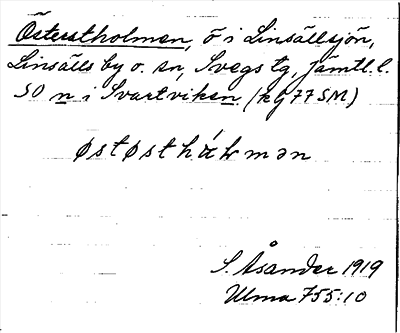 Österstholmen, ö i Linsällsjön,
Linsälls by o. sn, Svegs tg, Jämtl. l.
SO n i Svartviken. (kg 77 SM)
østøsthålmən
S. Åsander 1919
Ulma 755:10